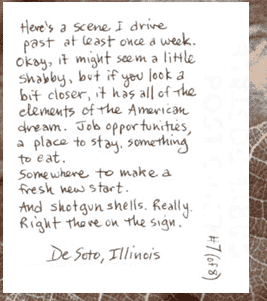 Here's a scene I drive
past at least once a week.
Okay, it might seem a little
shabby, but if you look a
bit closer, it has all of the
elements of the American
dream. Job opportunities,
a place to stay, something
to eat.
Somewhere to make a
fresh new start.
And shotgun shells. Really.
Right there on the sign.
De Soto, Illinois
#7 (of 8)